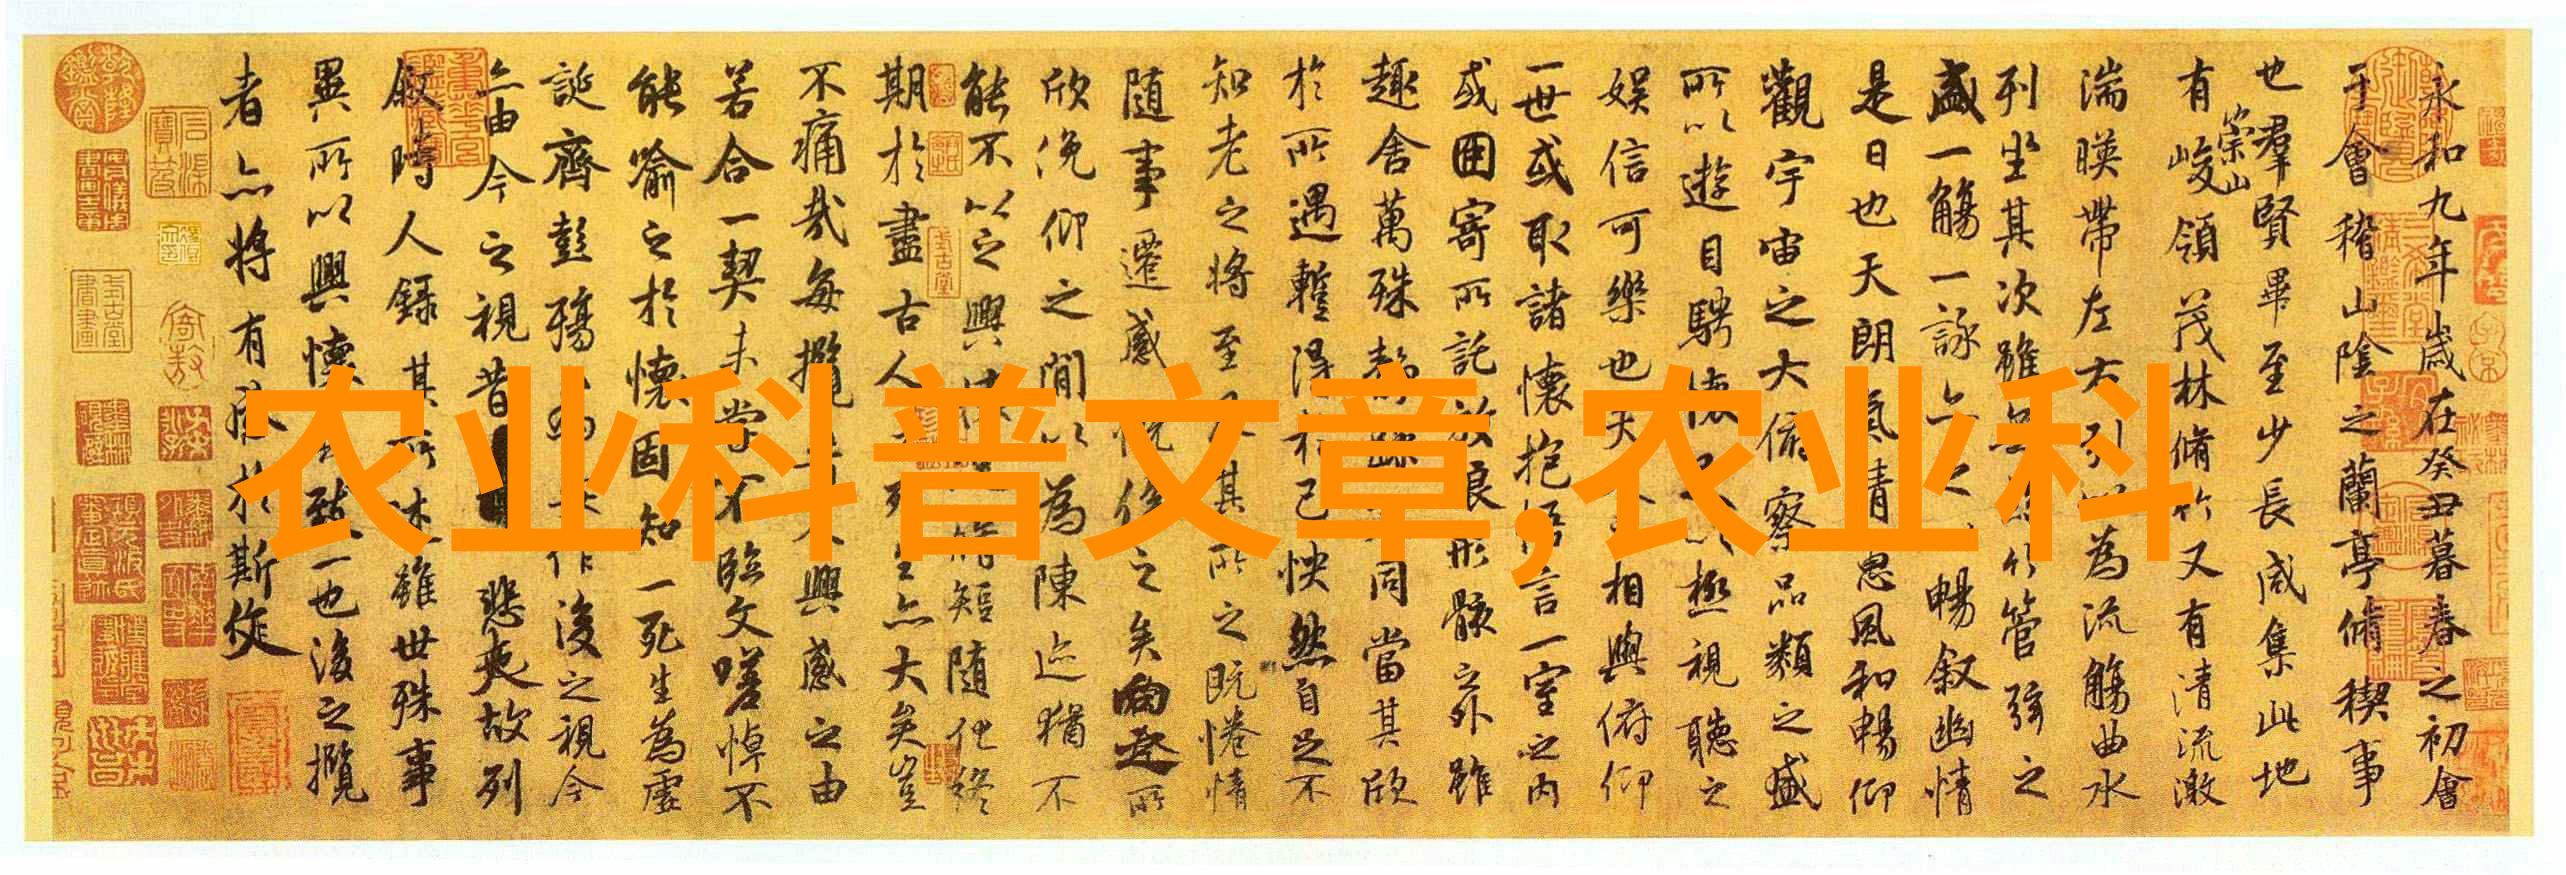 农业科普文章,农业科
永和九年歲在癸丑暮春之初會
于會稽山陰之蘭亭脩稧事
也羣賢畢至少長咸集此地
有崇山峻領茂林脩竹又有清流激
湍暎帶左右引以為流觴曲水
列坐其次雖無絲竹管弦之
盛一觴一詠亦足以暢敘幽情
是日也天朗氣清惠風和暢仰
觀宇宙之大俯察品類之盛
所以遊目騁懷足以極視聽之
娛信可樂也夫人之相與俯仰
一世或取諸懷抱悟言一室之內
或因寄所託放浪形骸之外雖
趣舍萬殊靜躁不同當其欣
於所遇暫得於己怏然自足不
知老之將至及其所之既惓情
隨事遷感慨係之矣向之所
欣俛仰之閒以為陳迹猶不
能不以之興懷脩短隨化終
期於盡古人云死生亦大矣豈
不痛哉每攬昔人興感之由
若合一契未嘗不臨文嗟悼不
能喻之於懷固知一死生為虛
誕齊彭殤為妄作後之視今
亦由今之視昔悲夫故列
敘時人錄其所述雖世殊事
異所以興懷其致一也後之攬
者亦將有感於斯文